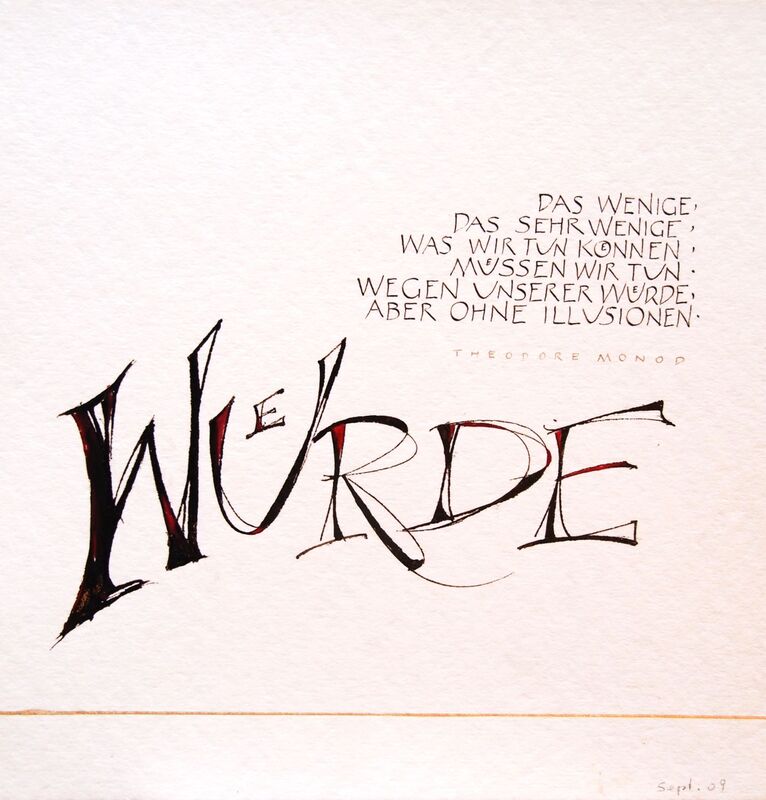 DAS WENIGE,
DAS SEHR WENIGE,
WAS WIR TUN KOͤNNEN,
MUͤSSEN WIR TUN.
WEGEN UNSERER WUͤRDE,
ABER OHNE ILLUSIONEN.
THEODORE MONOD
WUͤRDE
Sept. 09